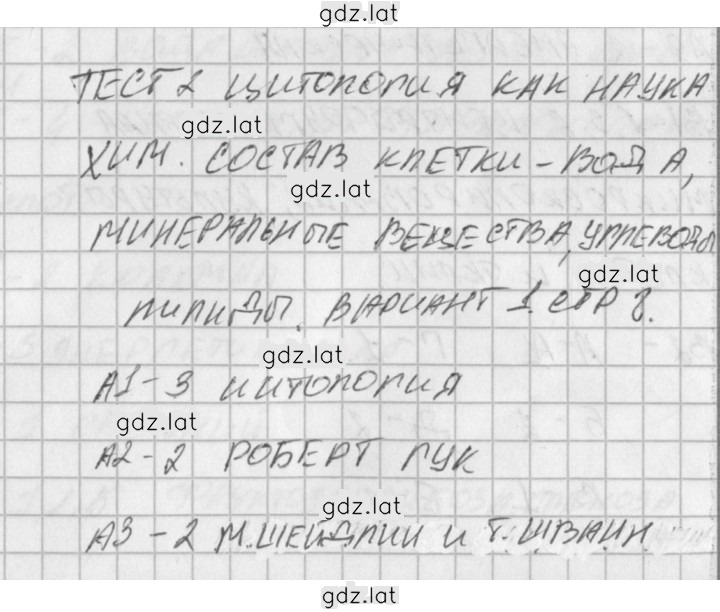 gdz.lat
ТЕСТ 2 ЦИТОЛОГИЯ КАК НАУКА
gdz.lat
ХИМ. СОСТАВ КЛЕТКИ - ВОДА,
gdz.lat
МИНЕРАЛЬНЫЕ ВЕЩЕСТВА, УГЛЕВОДЫ
gdz.lat
ЛИПИДЫ. ВАРИАНТ 1 СТР 8.
gdz.lat
А1 - 3 ЦИТОЛОГИЯ
gdz.lat
А2 - 2 РОБЕРТ ГУК
gdz.lat
А3 - 2 М.ШЕЙДЛИН И Т. ШВАНН
gdz.lat